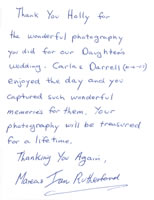 Thank You Hally for
the wonderful photography
you did for our Daughters
wedding. Carla & Darrell
enjoyed the day and you
captured such wonderful
memories for them. Your
photography will be treasured
for a lifetime.
Thanking You Again,
Rutherford